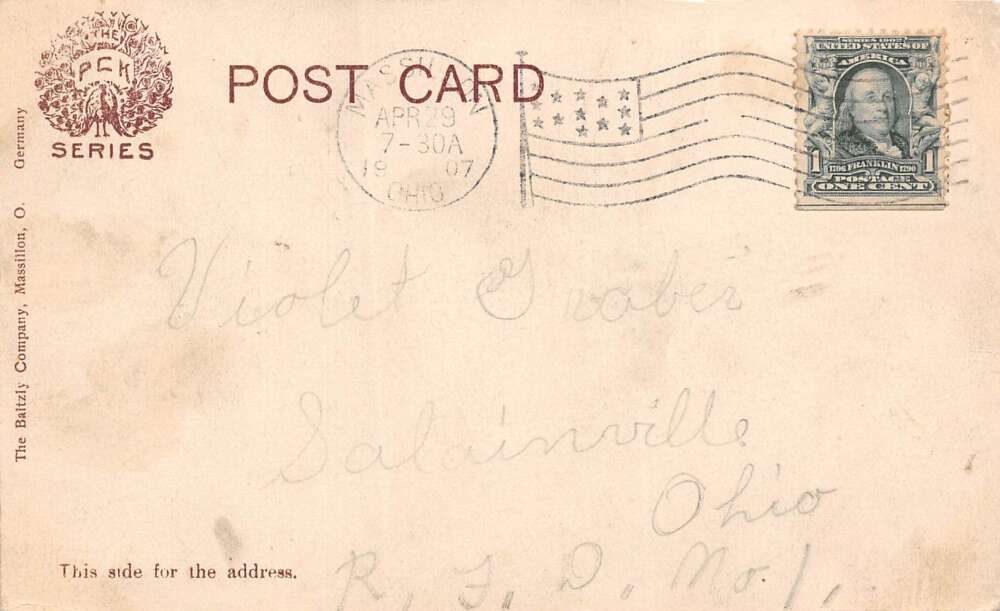 THE
PCK
SERIES
POST CARD
MASSILLON
APR 29
7-30A
19 07
OHIO
SERIES 1902
UNITED STATES OF
AMERICA
1 1706 FRANKLIN 1790 1
POSTAGE
ONE CENT
The Baitzly Company, Massillon, O. Germany
Violet Graber
Salainville
Ohio
R. F. D. No 1.
This side for the address.